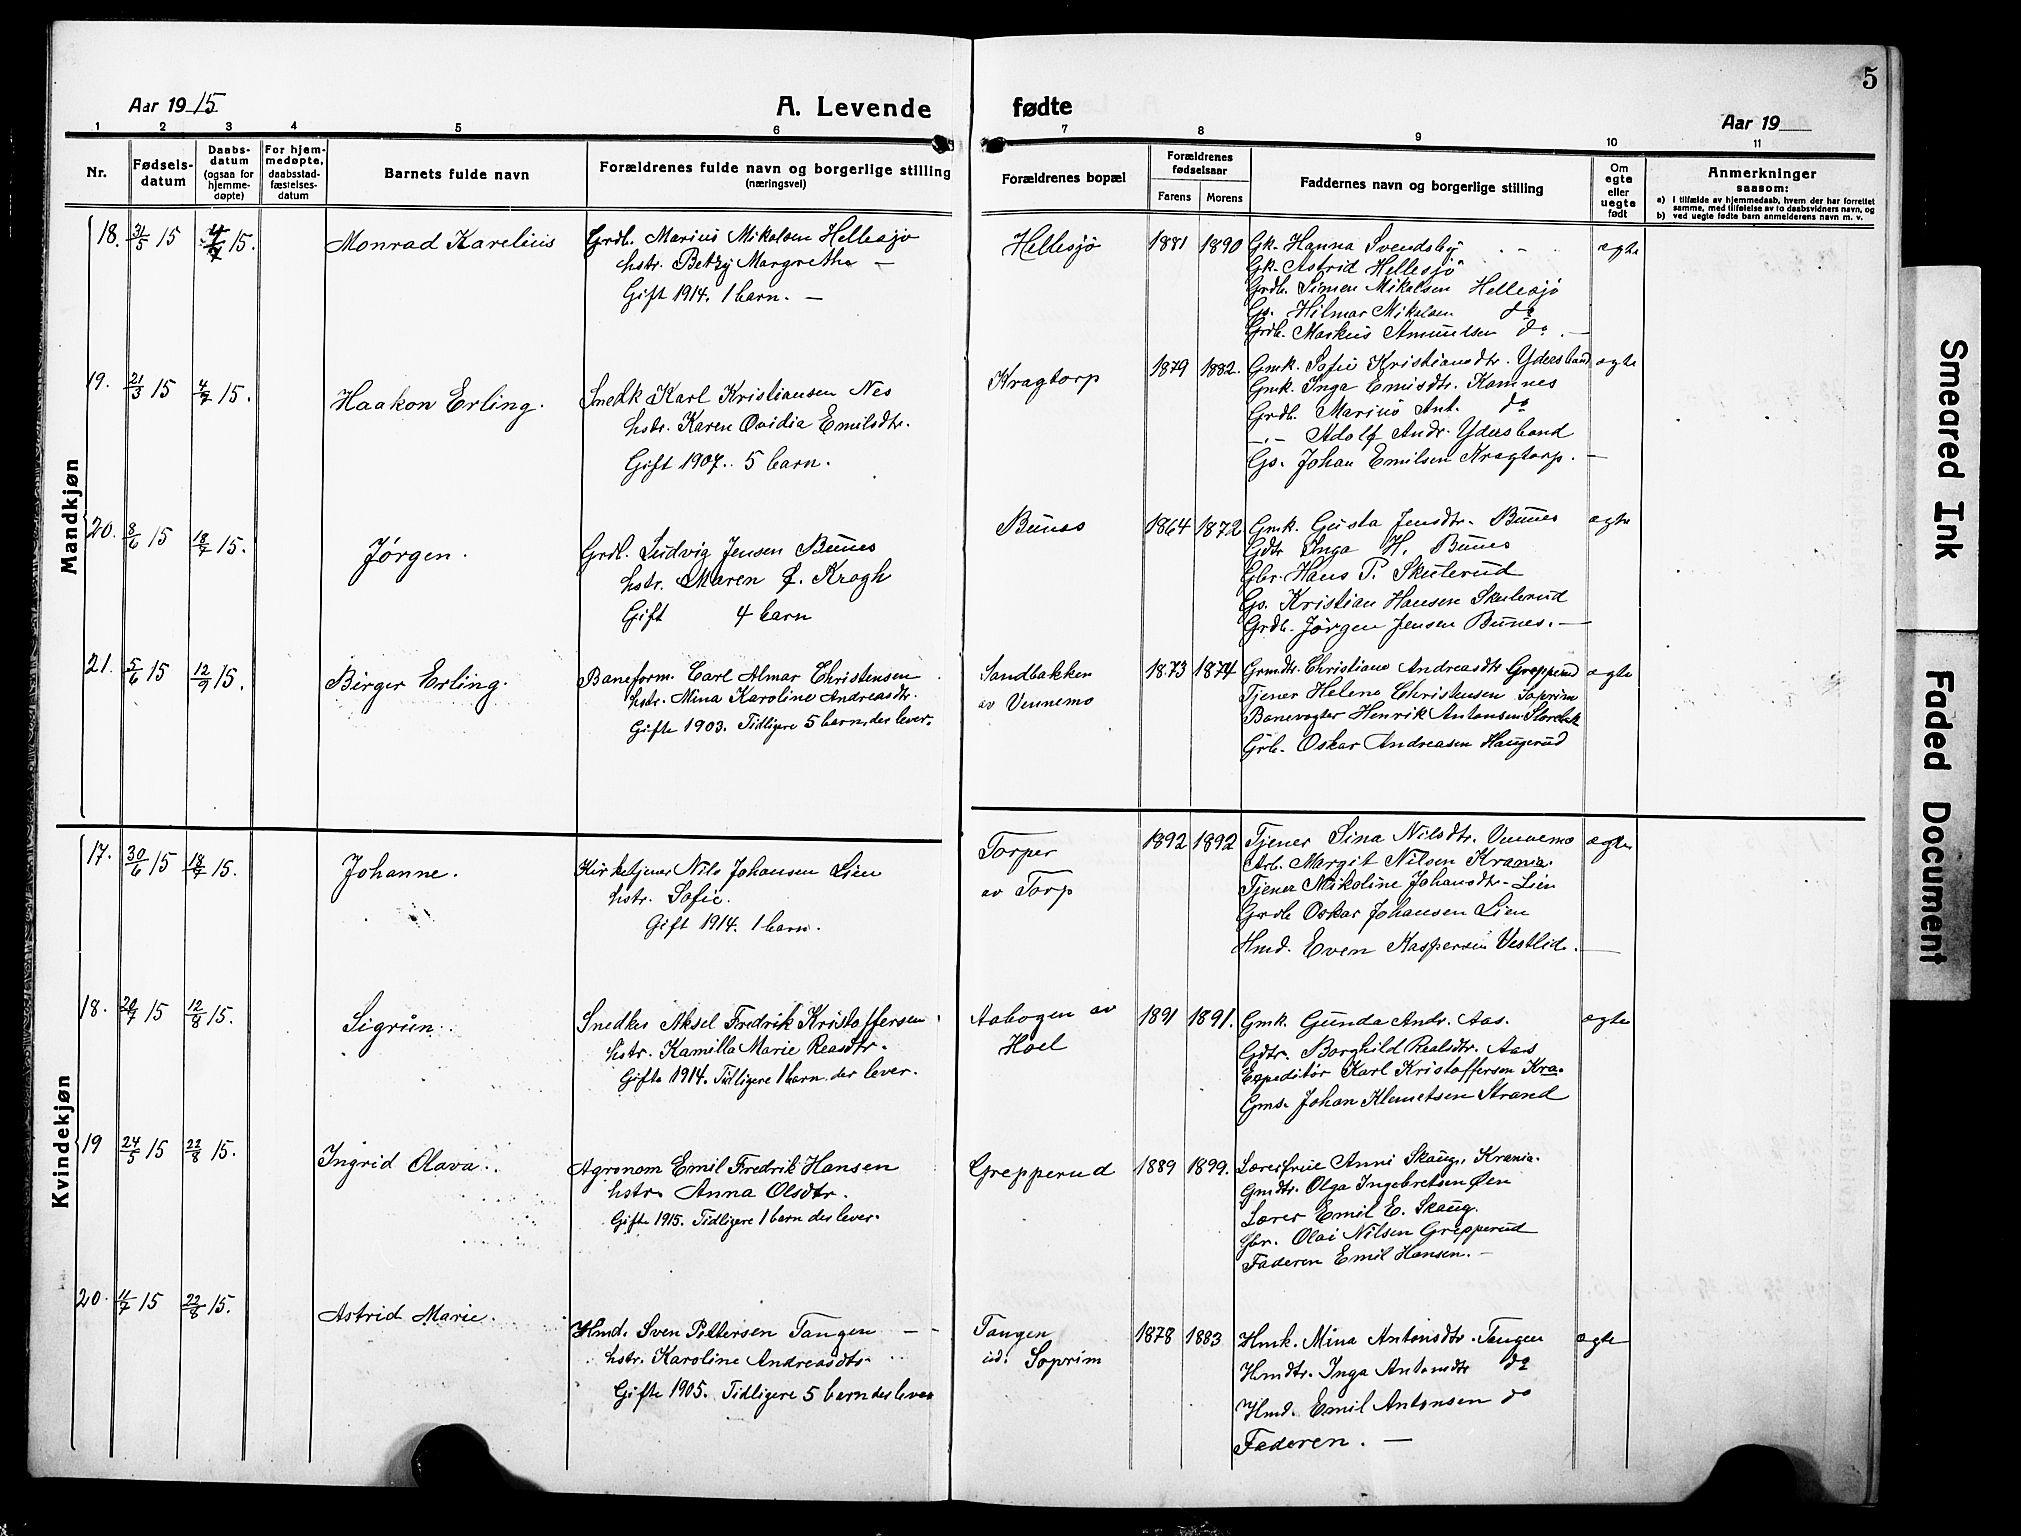 5
Aar 1915
A. Levende
fødte
Aar 19
1 2 3 4 5 6 7 8 9 10 11
Nr.
Fødsels-
datum
Daabs-
datum
(ogsaa for
hjemme-
døpte)
For hjem-
medøpte,
daabsstad-
fæstelses-
datum
Barnets fulde navn
Forældrenes fulde navn og borgerlige stilling
(næringsvei)
Forældrenes bopæl
Forældrenes
fødselsaar
Farens
Morens
Faddernes navn og borgerlige stilling
Om
egte
eller
uegte
født
Anmerkninger
saasom:
a) I tilfælde av hjemmedaab, hvem der har forrettet
samme, med tilføielse av to daabsvidners navn, og
b) ved uegte fødte barn anmelderens navn m. v.
Mandkjøn
18. 31/5 15 4/7 15. Monrad Karelius
Grdb. Marius Mikalsen Hellesjø
hstr. Betzy Margrethe —
Gift 1914. 1 barn. —
Hellesjö 1881 1890
Gk. Hanna Svendsby
Gk. Astrid Hellesjö
Grdb. Simen Mikalsen Hellesjö
Gs. Hilmar Mikalsen do
Grdb. Markus Amundsen do. —
egte
19. 21/3 15 4/7 15. Haakon Erling.
Snedk Karl Kristiansen Nes
hstr. Karen Ovidia Emilsdtr.
Gift 1907. 5 barn.
Kragtorp 1879 1882.
Gmk. Sofie Kristiansdtr. Ydersbond
Gmk. Inga Emisdtr. Kamnes
Grdb. Marius Ant. do
—.— Adolf Andr. Ydersbond
Gs. Johan Emilsen Kragtorp. —
egte
20. 8/6 15 18/7 15. Jørgen.
Grdb. Ludvig Jensen Bunes
hstr. Maren J. Krogh
Gift 4 barn
Bunes 1864 1872
Gmk. Gusta Jensdtr. Bunes
Gdtr Inga H. Bunes
Gbr. Hans P. Skulerud
Gs. Kristian Hansen Skulerud
Grdb. Jørgen Jensen Bunes. —
egte
21. 5/6 15 12/9 15. Birger Erling.
Baneform. Carl Almar Christensen
hstr. Mina Karoline Andreasdtr.
Gifte 1903. Tidligere 5 barn, der lever.
Sandbakken
av Vennemo
1873 1874
Grmdtr. Christiane Andreasdtr Grepperud
Tjener Helene Christensen Soprim
Banevogter Henrik Antonsen
Grb. Oskar Andreasen Haugerud
egte
Kvindekjøn
17. 30/6 15 18/7 15. Johanne.
Kirketjener Nils Johansen Lien
hstr. Sofie.
Gift 1914. 1 barn.
Torper
av Torp
1892 1892
Tjener Sina Nilsdtr. Vennemo
Arb. Margit Nilsen Krania.
Tjener Mikoline Johansdtr. Lien
Grdb Oskar Johansen Lien
Hmd. Even Kaspersen Vestlid. —
egte
18. 20/7 15 12/8 15. Sigrun.
Snedker Aksel Fredrik Kristoffersen
hstr. Kamilla Marie Reasdtr.
Gifte 1914. Tidligere 1 barn der lever.
Aabogen av
Hoel
1891 1891.
Gmk. Gunda Andr. Aas.
Gdtr. Borghild Realsdtr. Aas
Expeditör Karl Kristoffersen Kra.
Gms. Johan Klemetsen Strand
egte
19 24/5 15 22/8 15. Ingrid Olava.
Agronom Emil Fredrik Hansen
hstr. Anna Olsdtr.
Gifte 1915. Tidligere 1 barn der lever.
Grepperud 1889 1899.
Lærerfrue Anni Skaug, Krania.
Gmdtr. Olga Ingebretsen Øen
Lærer Emil E. Skaug.
Gbr. Olai Nilsen Grepperud
Faderen Emil Hansen. —
20. 11/7 15 22/8 15. Astrid Marie.
Hmd. Sven Pettersen Tangen — —
hstr. Karoline Andreasdtr.
Gifte 1905. Tidligere 5 barn der lever
Tangen
ud. Soprim
1878 1883
Hmk. Mina Antonsdtr. Tangen
Hmdtr. Inga Antonsdtr do
Hmd. Emil Antonsen do
Faderen. —
egte
Smeared Ink
Faded Document